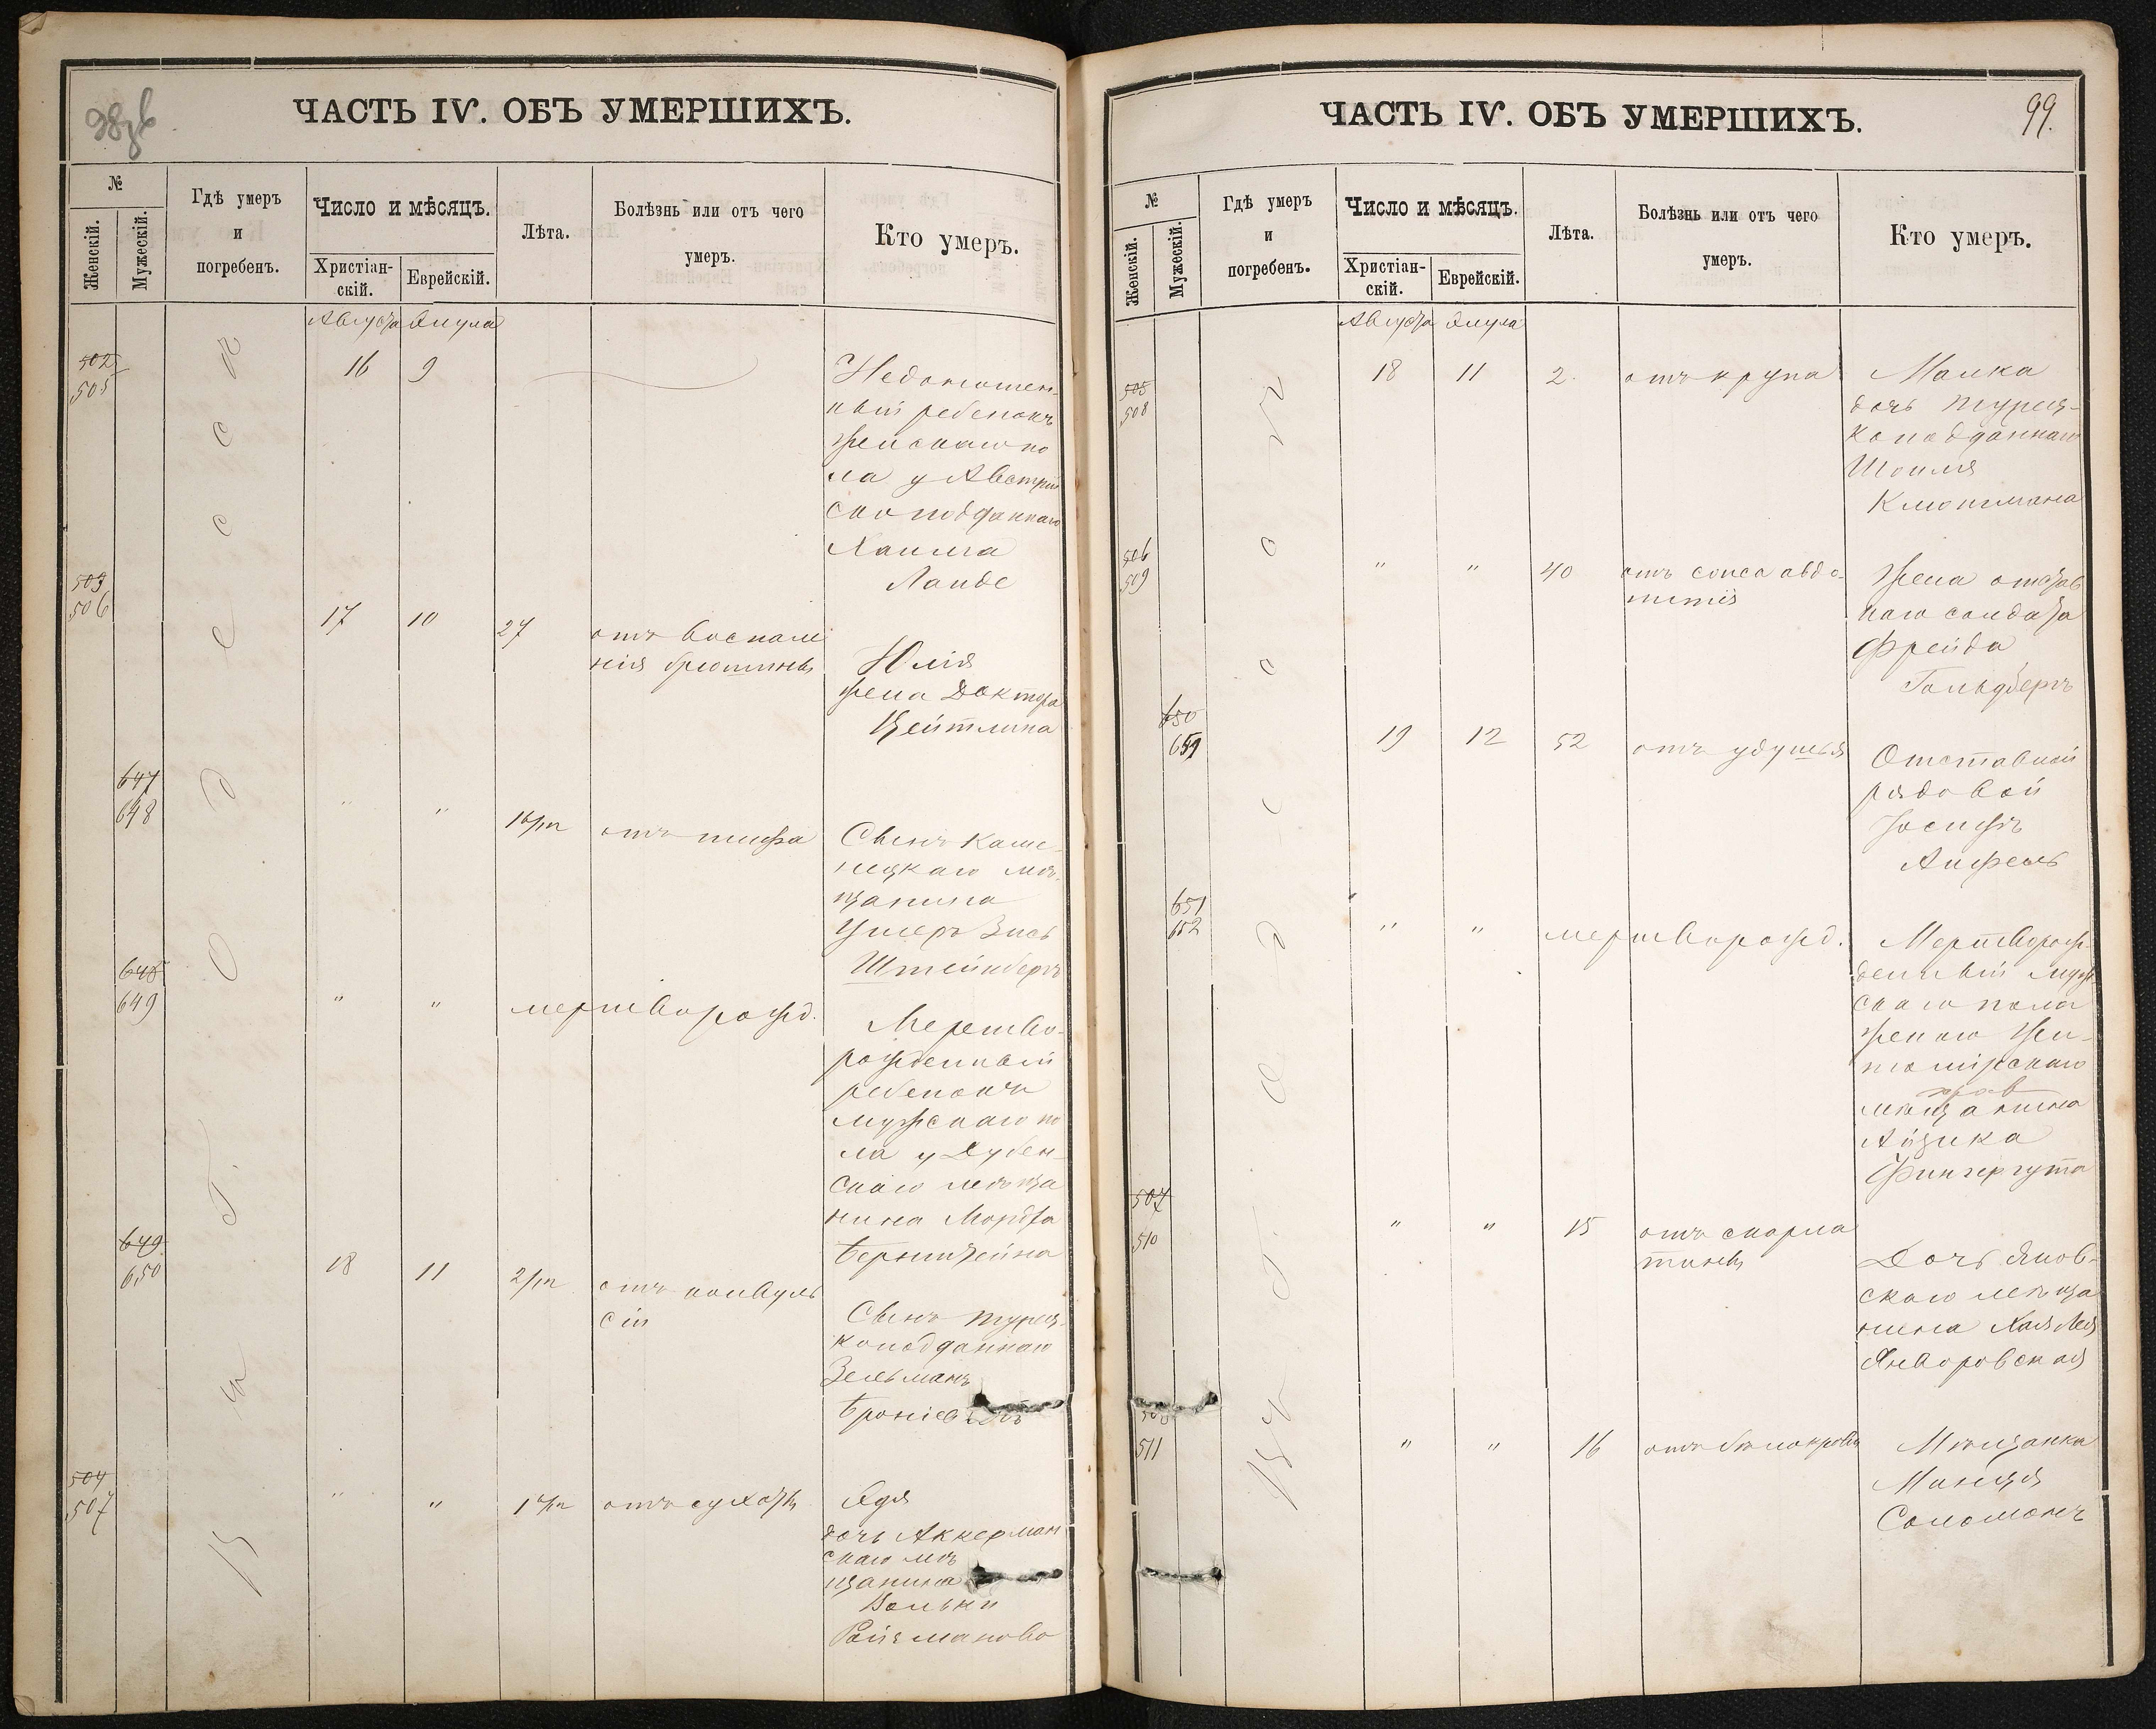 98
ЧАСТЬ IV. ОБЪ УМЕРШИХЪ.
№
Женскій.
Мужескій.
Гдѣ умеръ
и
погребенъ.
Число и мѣсяцъ.
Христіан-
скій.
Еврейскій.
Лѣта.
Болѣзнь или отъ чего
умеръ.
Кто умеръ.
Августа Элула
Въ г. Одессѣ
502
505
16 9
Недоношен-
ный ребенокъ
женскаго по
ла у Австрій
скоподданнаго
Хаима
Ланде
503
506
17 10 27 отъ воспале
нія брюшины
Юлія
жена Доктора
Цейтлина
647
648
" " 16/m отъ тифа
Сынъ Каме
нецкаго мѣ-
щанина
Ушеръ Зись
Штейнбергъ
648
649
" " мертворожд.
Мертво-
рожденный
ребенокъ
мужскаго по
ла у Дубен-
скаго мѣща
нина Мордка
Бернштейна
649
650
18 11 2/m отъ конвуль
сіи
Сынъ турец-
коподданнаго
Зельманъ
504
507
" " 1 отъ сухоты
Эдя
дочь Аккерман
скаго мѣ
щанина
Вольки
Ройзманова
ЧАСТЬ IV. ОБЪ УМЕРШИХЪ.
99.
№
Женскій.
Мужескій.
Гдѣ умеръ
и
погребенъ.
Число и мѣсяцъ.
Христіан-
скій.
Еврейскій.
Лѣта.
Болѣзнь или отъ чего
умеръ.
Кто умеръ.
Августа Элула
Въ г. Одессѣ
505
508
18 11 2 отъ крупа
Малка
дочь турец-
коподданнаго
Шоиля
Клопмана
506
509
" " 40
Жена отстав
наго солдата
Фрейда
Гольдбергъ
650
651
19 12 52 отъ удушья
Отставной
рядовой
Іосифъ
Апфель
651
652
" " мертворожд.
Мертворож-
денный муж-
скаго пола
женою Жи-
томірскаго
мѣщанина
Айзика
Фингергута
507
510
" " 15 отъ скарла
тины
Дочь Янов-
скаго мѣща
нина Хая Лея
Яворовская
508
511
" " 16 отъ бѣлокровія
Мѣщанка
Манця
Соломонъ